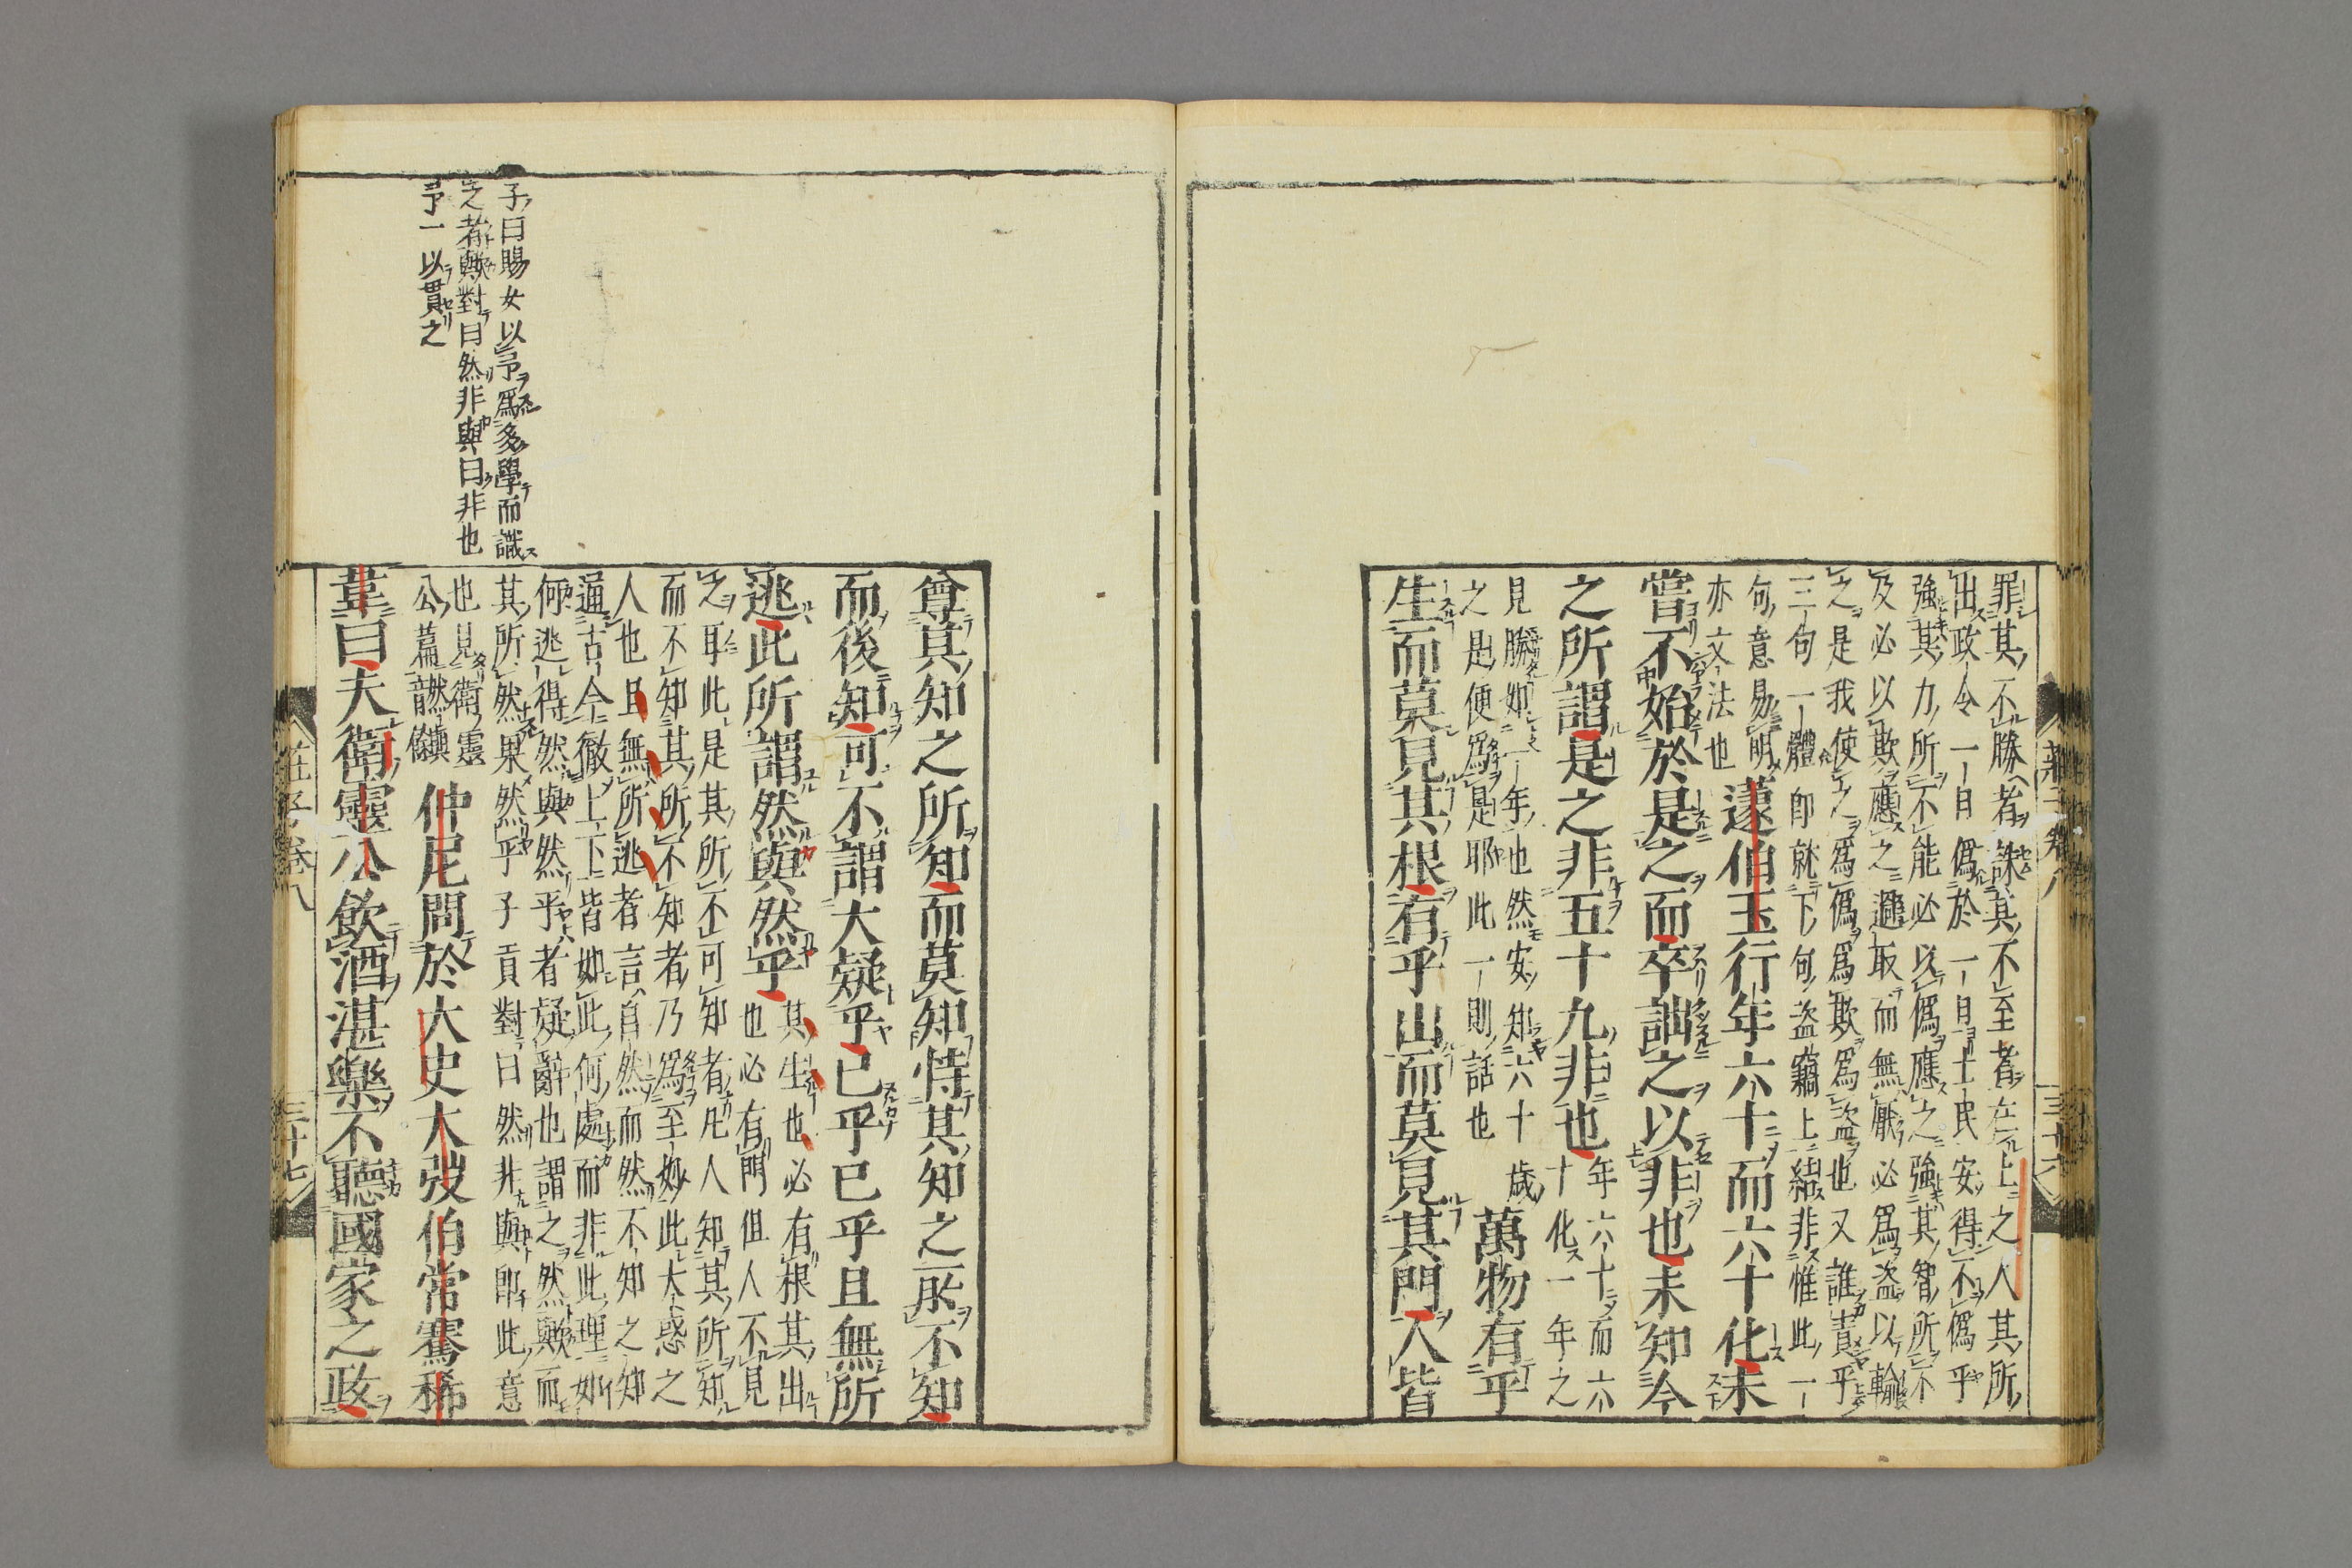 罪其不勝者誅其不至者在上之人其所
出政令一日僞於一日士民安得不僞乎
強其力所不能必以僞應之強其智所不
及必以欺應之避取而無厭必爲盜以輸
之是我使之爲僞爲欺爲盜也又誰責乎
三句一體卽就下句盜竊上結非惟此一
句意易明
亦文法也
蘧伯玉行年六十而六十化未
嘗不始於是之而卒詘之以非也未知今
之所謂是之非五十九非也
年六十而六
十化一年之
見勝如一年也然安知六十歲
之是便爲是耶此一則話也
萬物有乎
生而莫見其根有乎出而莫見其門人皆
莊子卷八
三十六
子曰賜女以予爲多學而識
之者歟對曰然非與曰非也
予一以貫之
尊其知之所知而莫知恃其知之所不知
而後知可不謂大疑乎已乎已乎且無所
逃此所謂然與然乎
其生也必有根其出
也必有門但人不見
之耳此是其所不可知者凡人知其所知
而不知其所不知者乃爲至妙此大惑之
人也且無所逃者言自然而然不知之知
通古今徹上下皆如此何處而非此理如
何逃得然與然乎者疑辭也謂之然歟而
其所然果然乎子貢對曰然非與卽此意
也見衛靈
公篇
仲尼問於大史大弢伯常騫狶
韋曰夫衛靈公飲酒湛樂不聽國家之政
莊子卷八
三十七